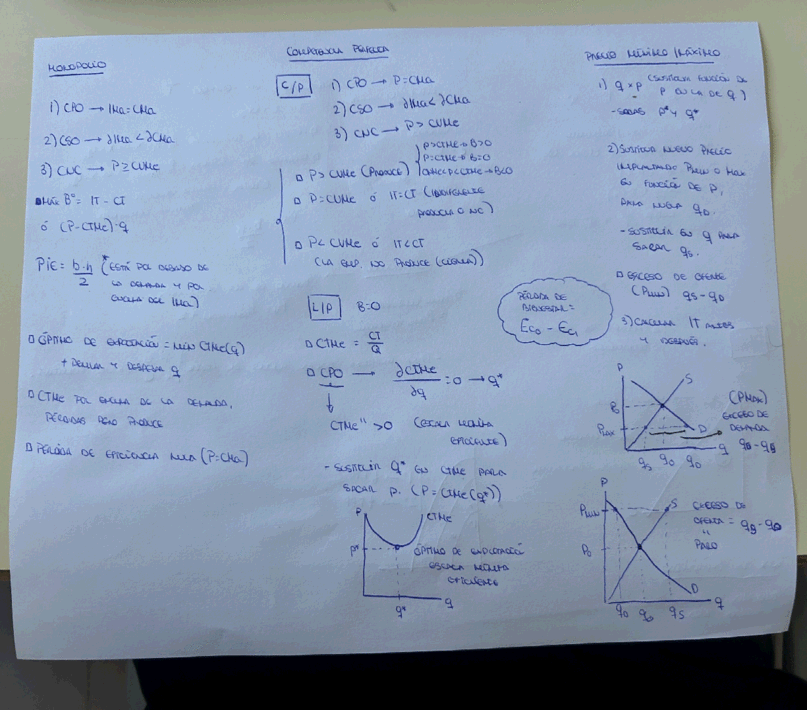 MONOPOLIO
1) CPO → IMa = CMa
2) CSO → ∂IMa < ∂CMa
3) CNC → P ≥ CVMe
Máx Bº = IT - CT
ó (P-CTMe)·q
PIE = b·h/2 * (ESTÁ POR DEBAJO DE
LA DEMANDA Y POR
ENCIMA DEL IMa)
ÓPTIMO DE EXPLOTACIÓN = MIN CTMe(q)
+ DERIVAR Y DESPEJAR q
CTMe POR ENCIMA DE LA DEMANDA,
PÉRDIDAS PERO PRODUCE
PÉRDIDA DE EFICIENCIA NULA (P=CMa)
COMPETENCIA PERFECTA
C/P
1) CPO → P = CMa
2) CSO → ∂IMa < ∂CMa
3) CNC → P > CVMe
P > CVMe (PRODUCE)
P>CTMe → B>0
P=CTMe → B=0
CVMe<P<CTMe → B<0
P = CVMe ó IT = CT (INDIFERENTE
PRODUCIR O NO)
P < CVMe ó IT < CT
(LA EMP. NO PRODUCE (CIERRA))
L/P B=0
CTMe = CT/Q
CPO → ∂CTMe/∂q = 0 → q*
CTMe'' > 0 (ESCALA MÍNIMA
EFICIENTE)
- SUSTITUIR q* EN CTMe PARA
SACAR P. (P = CTMe(q*))
P
CTMe
P*
ÓPTIMO DE EXPLOTACIÓN
ESCALA MÍNIMA
EFICIENTE
q*
q
PÉRDIDA DE
BIENESTAR =
Ec0 - Ec1
PRECIO MÍNIMO / MÁXIMO
1) q × P (SUSTITUIR FUNCIÓN DE
P EN LA DE q)
- SACAS P* Y q*
2) SUSTITUIR NUEVO PRECIO
IMPLANTADO PMIN O MAX
EN FUNCIÓN DE P,
PARA NUEVA qD.
- SUSTITUIR EN q PARA
SACAR qS.
EXCESO DE OFERTA
(PMIN) qS - qD
3) CALCULAR IT ANTES
Y DESPUÉS.
P
S
P0
PMAX
D
q
qS q0 qD
(PMAX)
EXCESO DE
DEMANDA
qD - qS
P
PMIN
S
P0
D
qD q0 qS q
EXCESO DE
OFERTA = qS - qD
"
PARO